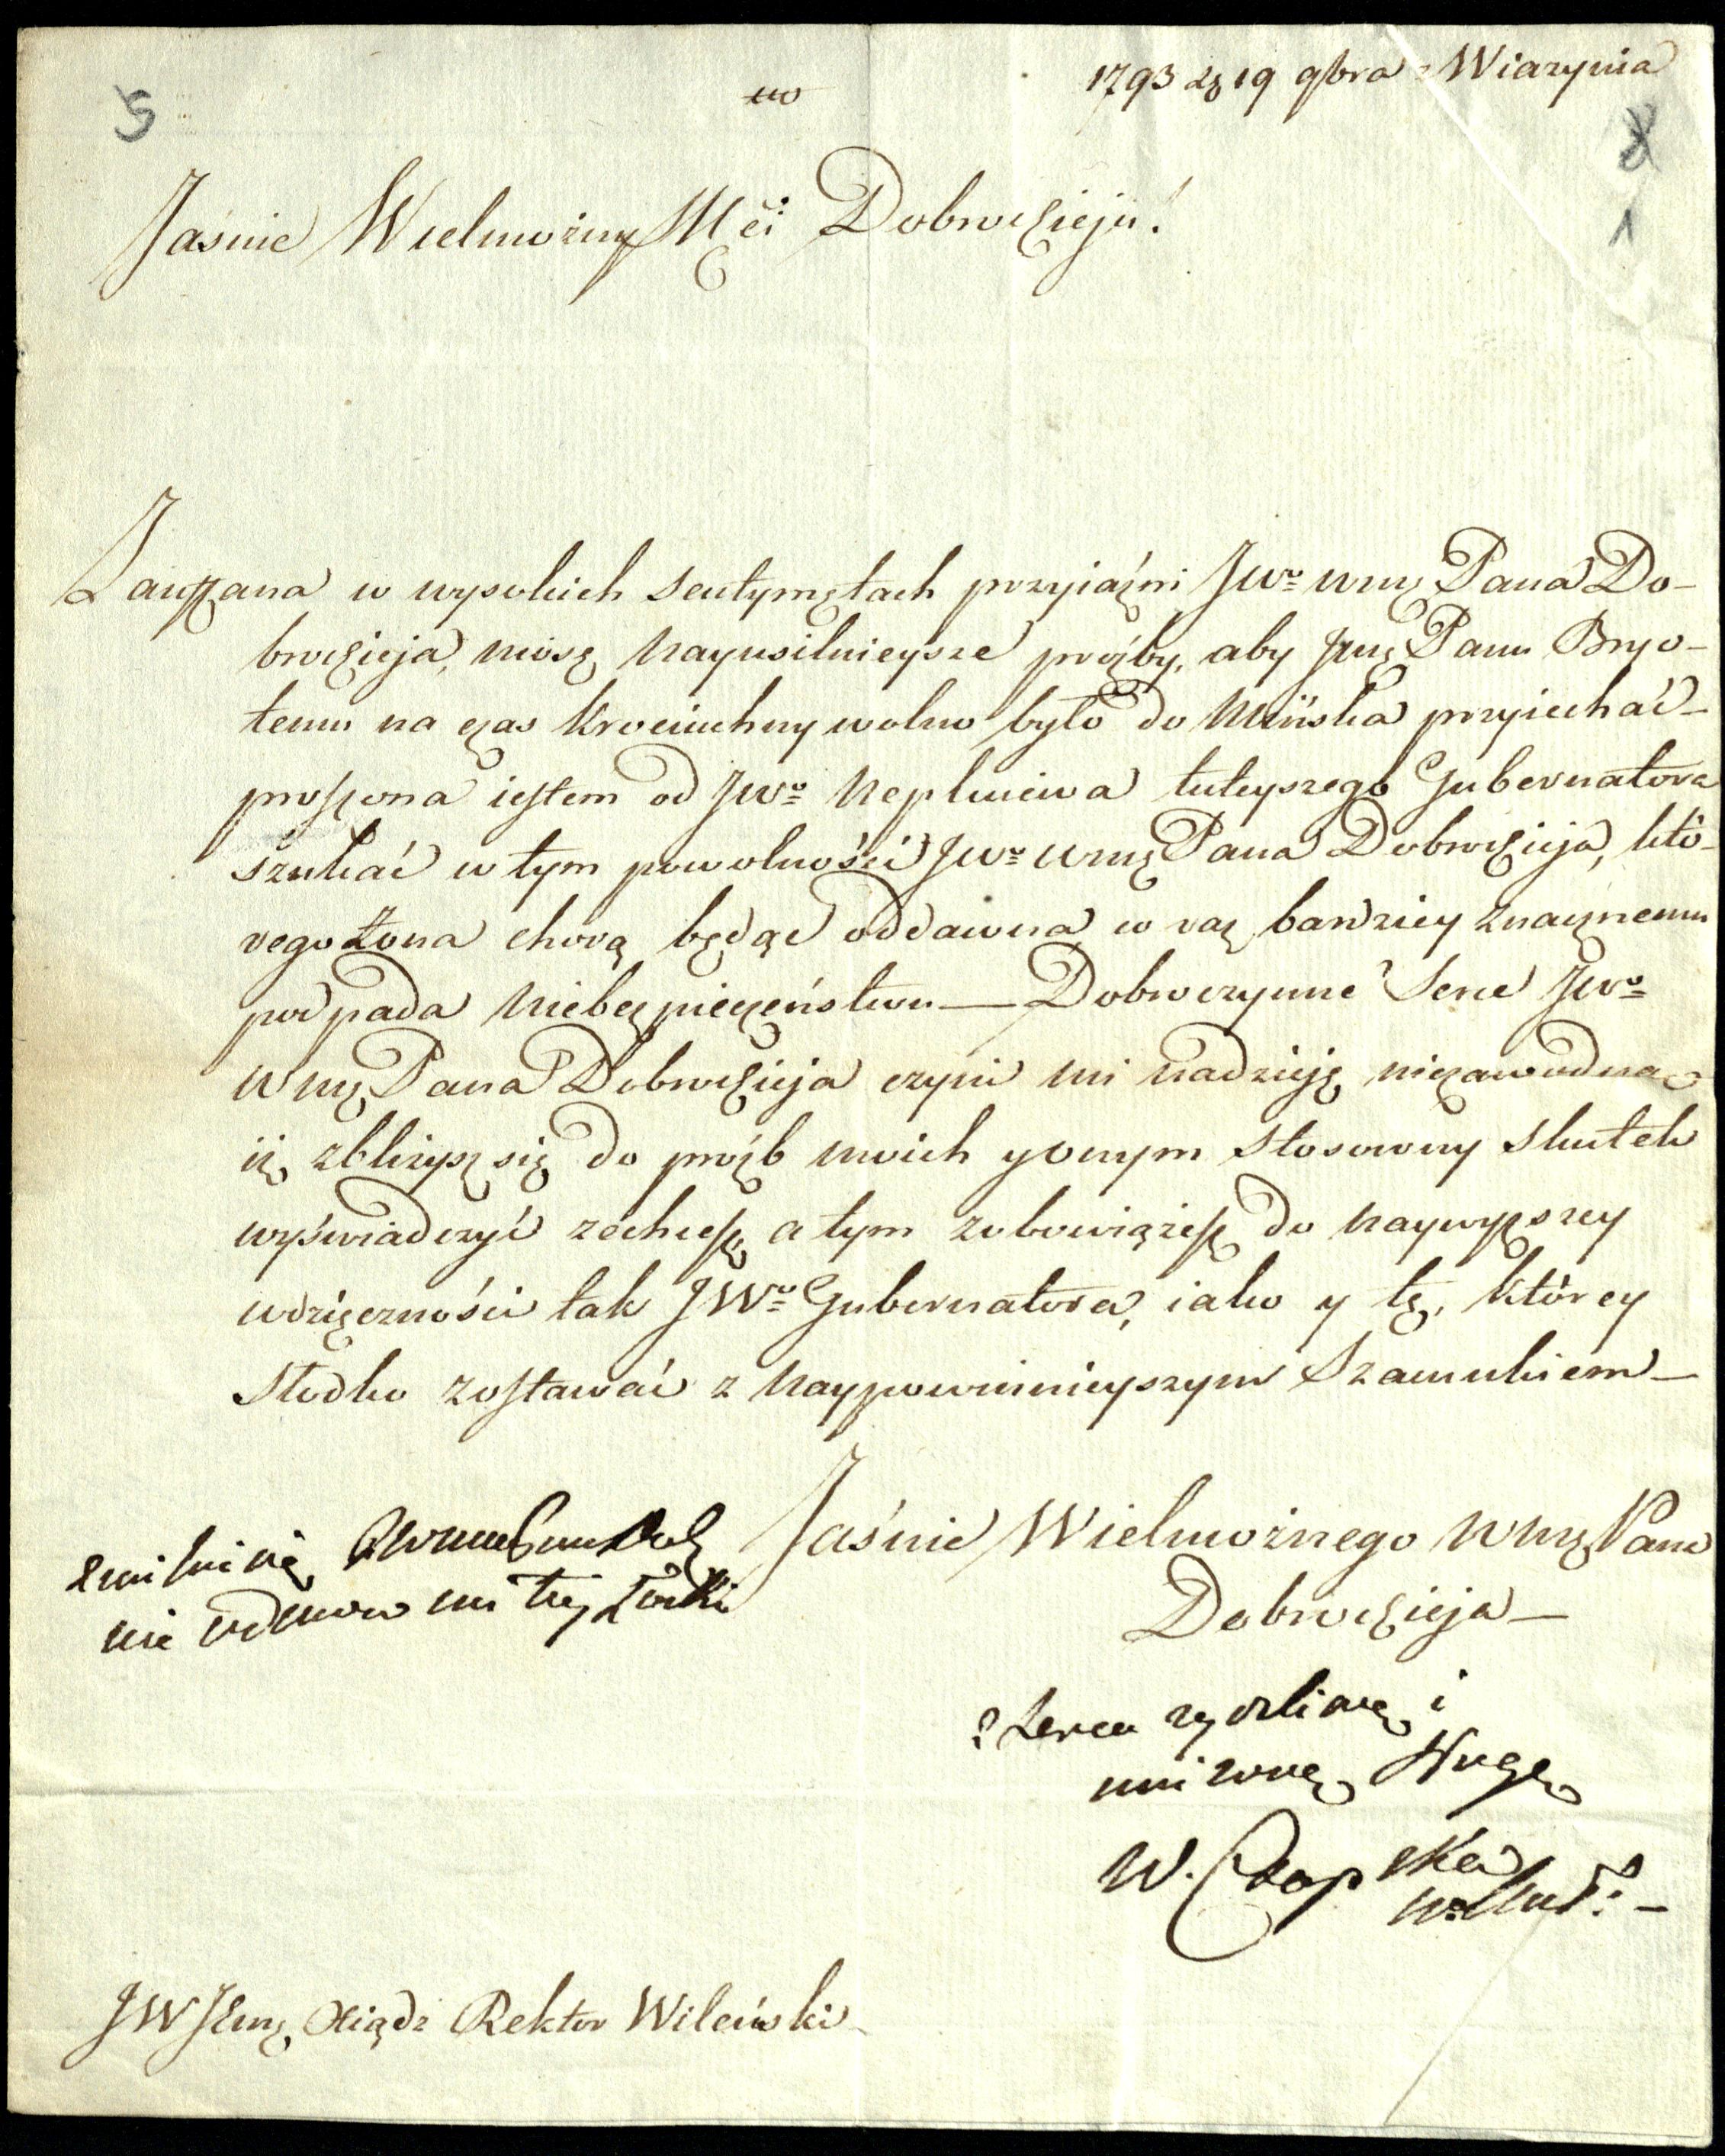 1793 dź 19 9bra z Wiazynia
5
8
1
Jaśnie Wielmożny Mći Dobrodzieju!
Zaufana w wysokich sentymętach przyiaźni JWo wmę Pana Do-
brodzieja, niosę nayusilnieysze proźby, aby Jmę Panu Bryo-
temu na czas krociuchny wolno było do Mińska przyiechać –
proszona iestem od JWo Neplujewa tuteyszego Gubernatora
szukać w tym powolności JWo wmę Pana Dobrodzieja, któ-
rego Żona chorą będąc oddawna, w raz bardziey znacznemu
podpada niebezpieczeństwu — Dobroczynne Serce JWo
wmę Pana Dobrodzieja czyni mi nadzieję niezawodną
iż zbliżysz się do proźb moich y onym stosowny skutek
wyświadczyć zechcesz, a tym zobowiążesz do naywyższey
wdzięczności tak JWo Gubernatora, iako y tę, którey
słodko zostawać z naypowinnieyszym Szacunkiem —
Jaśnie Wielmożnego wmę Pana
Dobrodzieja —
nie odmow mi tey łaski
z serca życzliwą i
uniżoną sługą
W. Czapska
JW Jźmę Xiądz Rektor Wileński